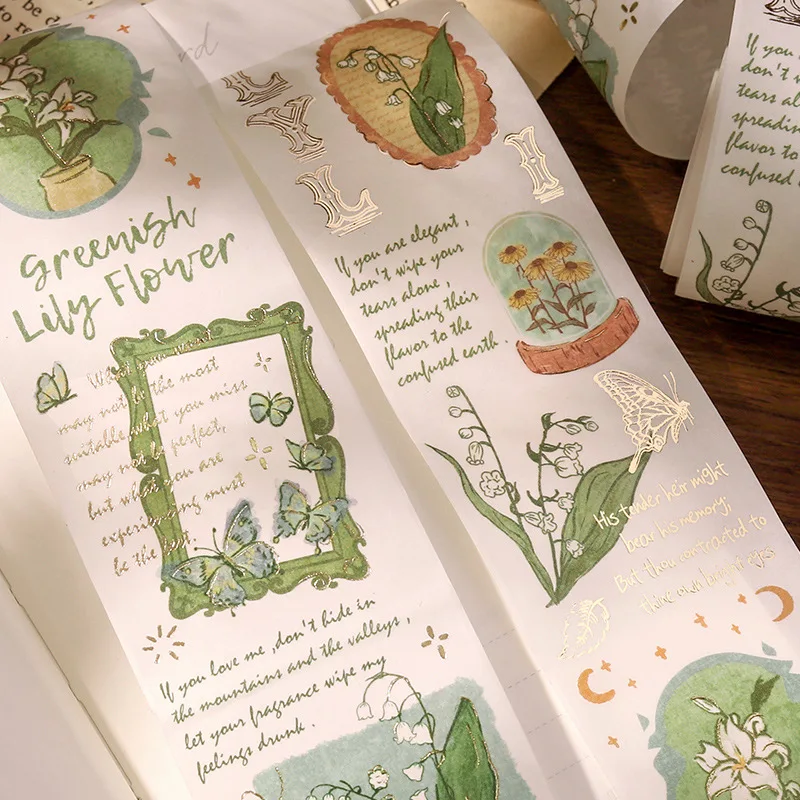 Greenish
Lily Flower
What you want
may not be the most
suitable what you miss
may not be perfect,
but what you are
experiencing must
be the
If you love me ,don't hide in
the mountains and the valleys ,
let your fragrance wipe my
feelings drunk .
L Y L I
If you are elegant ,
don't wipe your
tears alone ,
spreading their
flavor to the
confused earth .
His tender heir might
bear his memory;
But thou contracted to
thine own bright eyes
If you
don't
tears al
spreadin
flavor to
confused